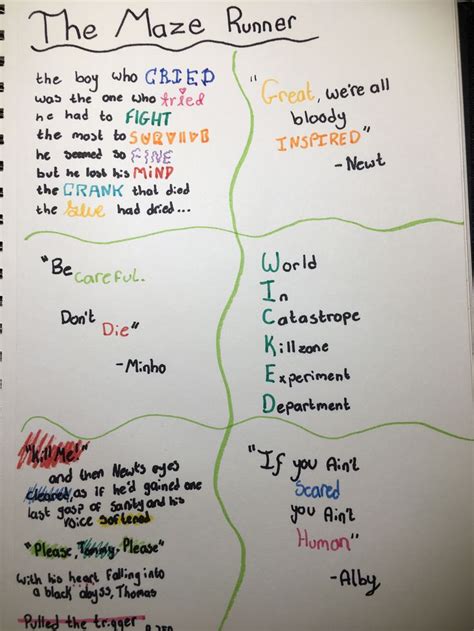 The Maze Runner
the boy who CRIED
was the one who tried
he had to FIGHT
the most to SURVIVE
he seemed so FINE
but he lost his MIND
the CRANK that died
the Glue had dried...
"Great, we're all
bloody
INSPIRED"
-Newt
"Be careful.
Don't
Die"
-Minho
World
In
Catastrope
Killzone
Experiment
Department
"Kill Me!"
and then Newts eyes
cleared, as if he'd gained one
last gasp of sanity and his
voice softened
"Please, Tommy, Please"
with his heart falling into
a black abyss, Thomas
Pulled the trigger
"If you Ain't
Scared
you Ain't
Human"
-Alby